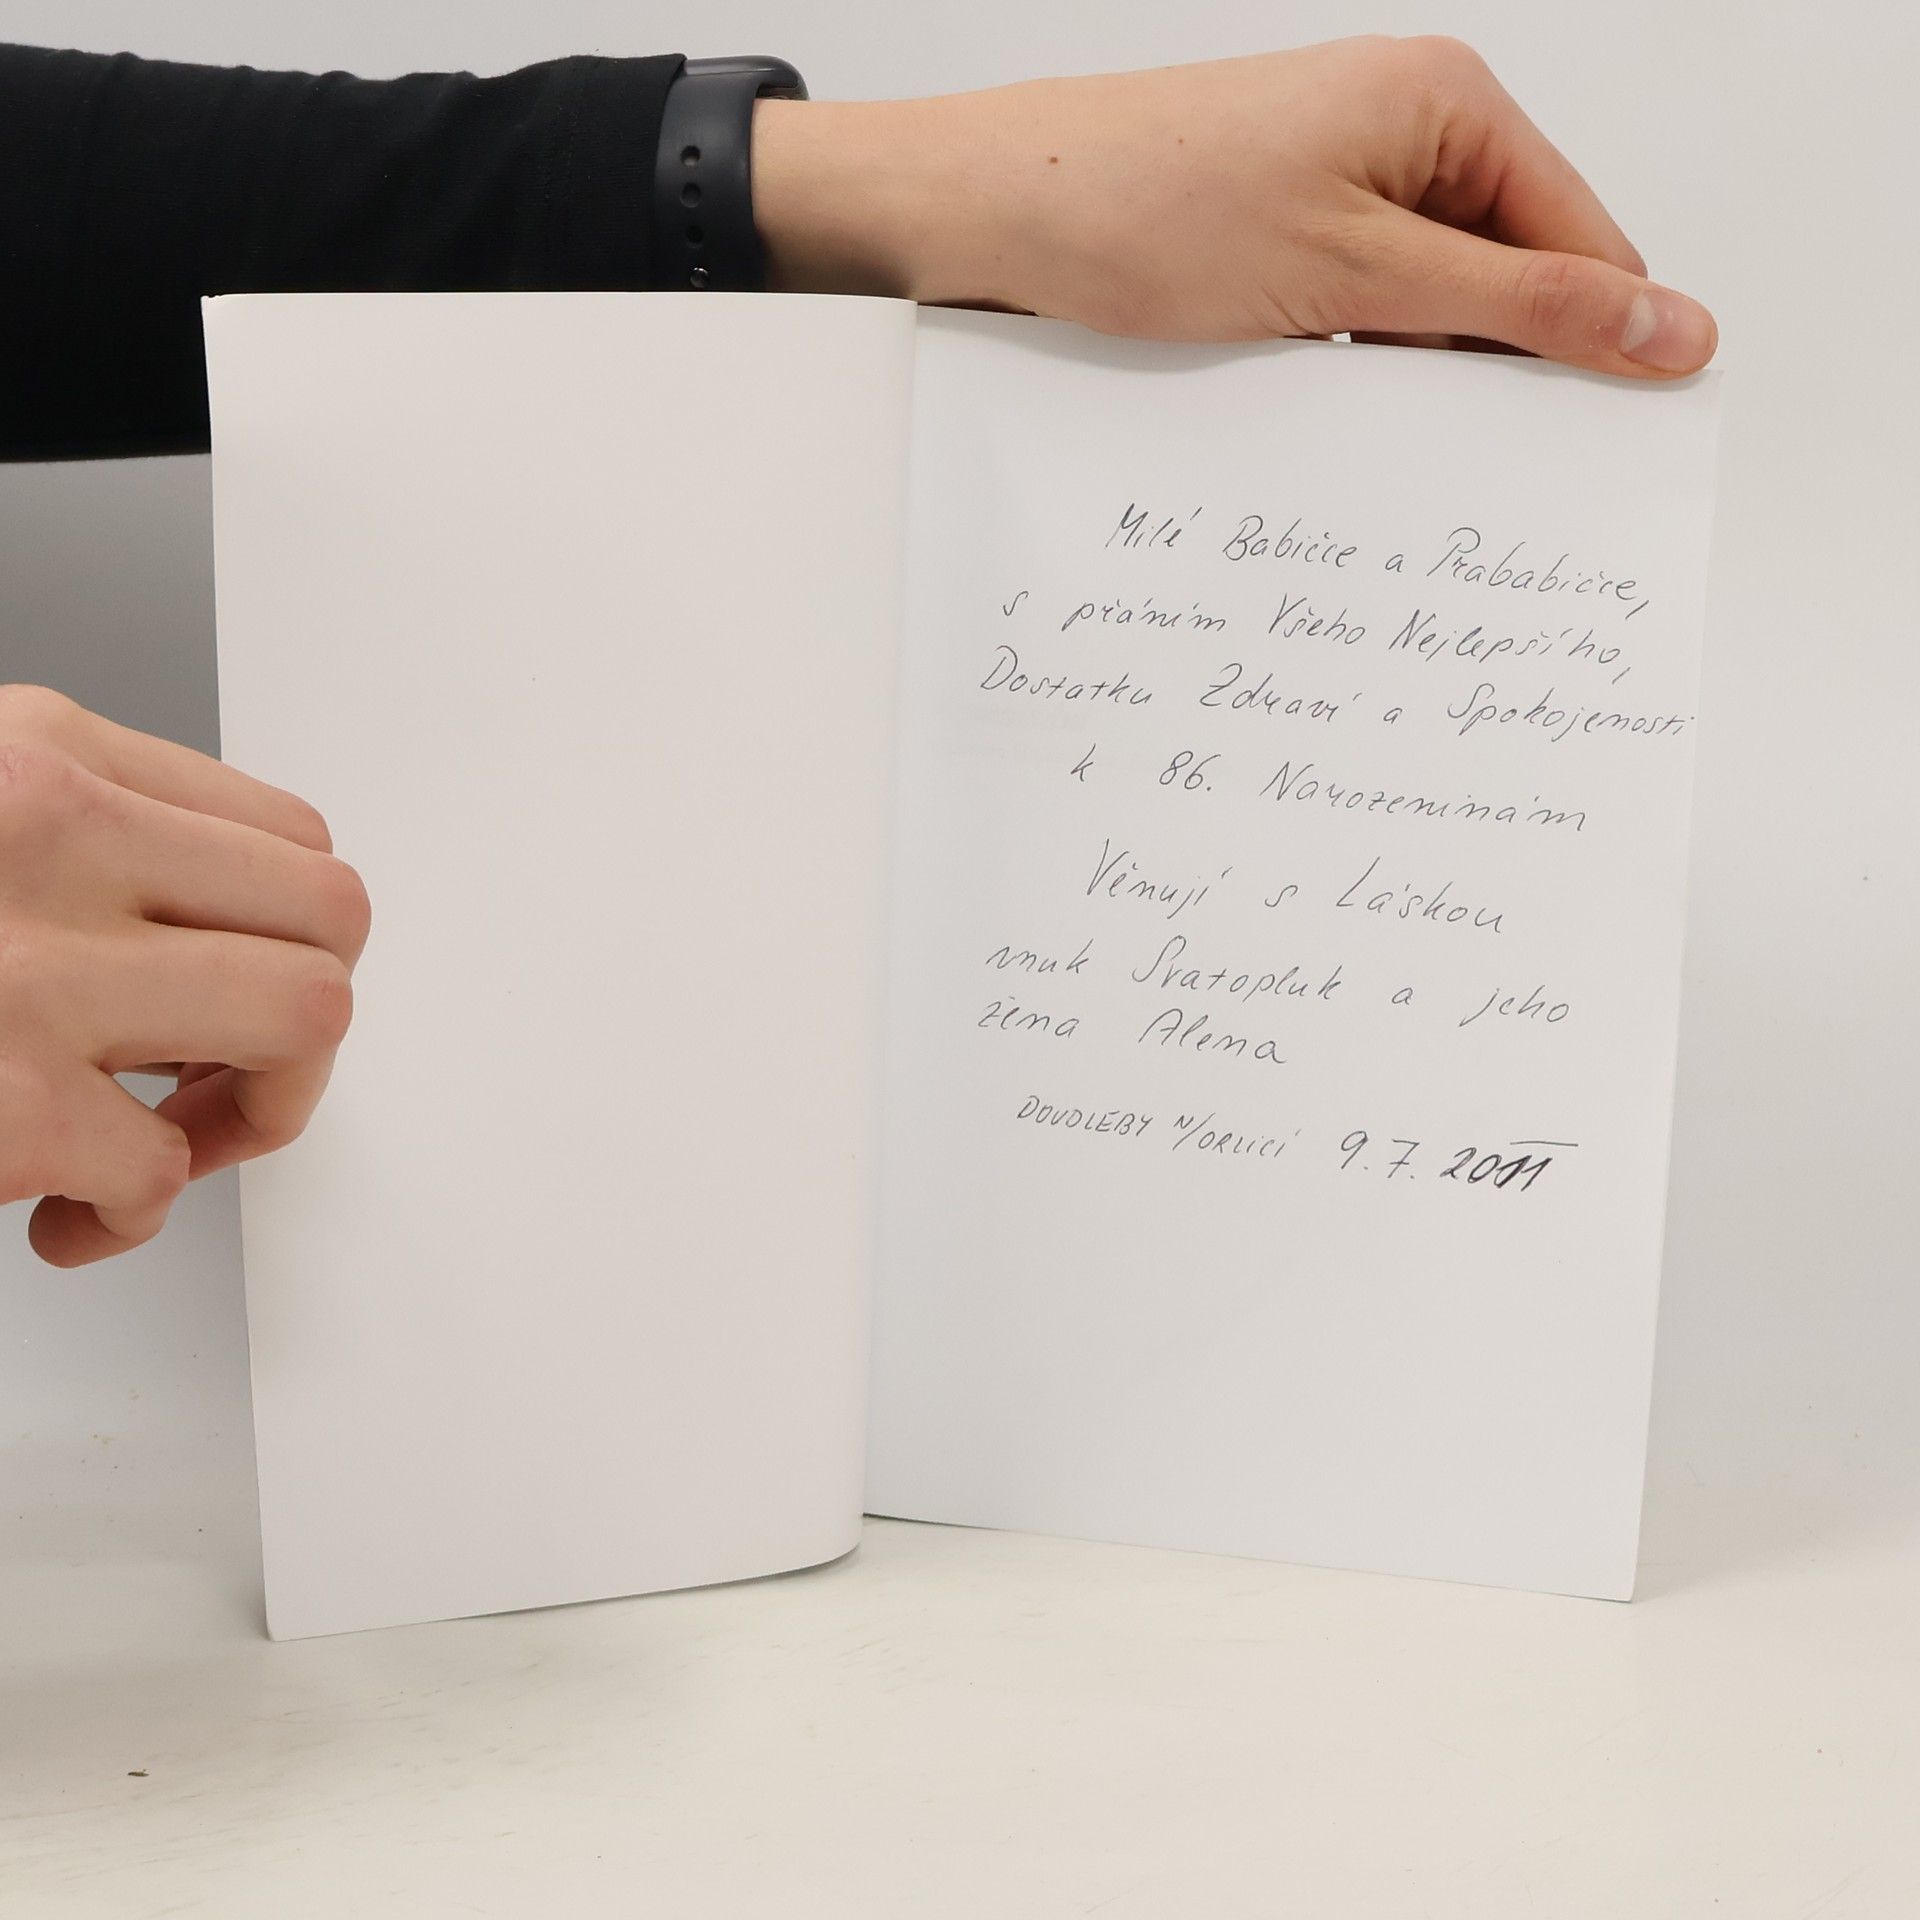 Milé Babičce a Prababičce,
s přáním Všeho Nejlepšího,
Dostatku Zdraví a Spokojenosti
k 86. Narozeninám
Věnují s Láskou
vnuk Svatopluk a jeho
žena Alena
DOUDLEBY N/ORLICÍ 9.7.2011